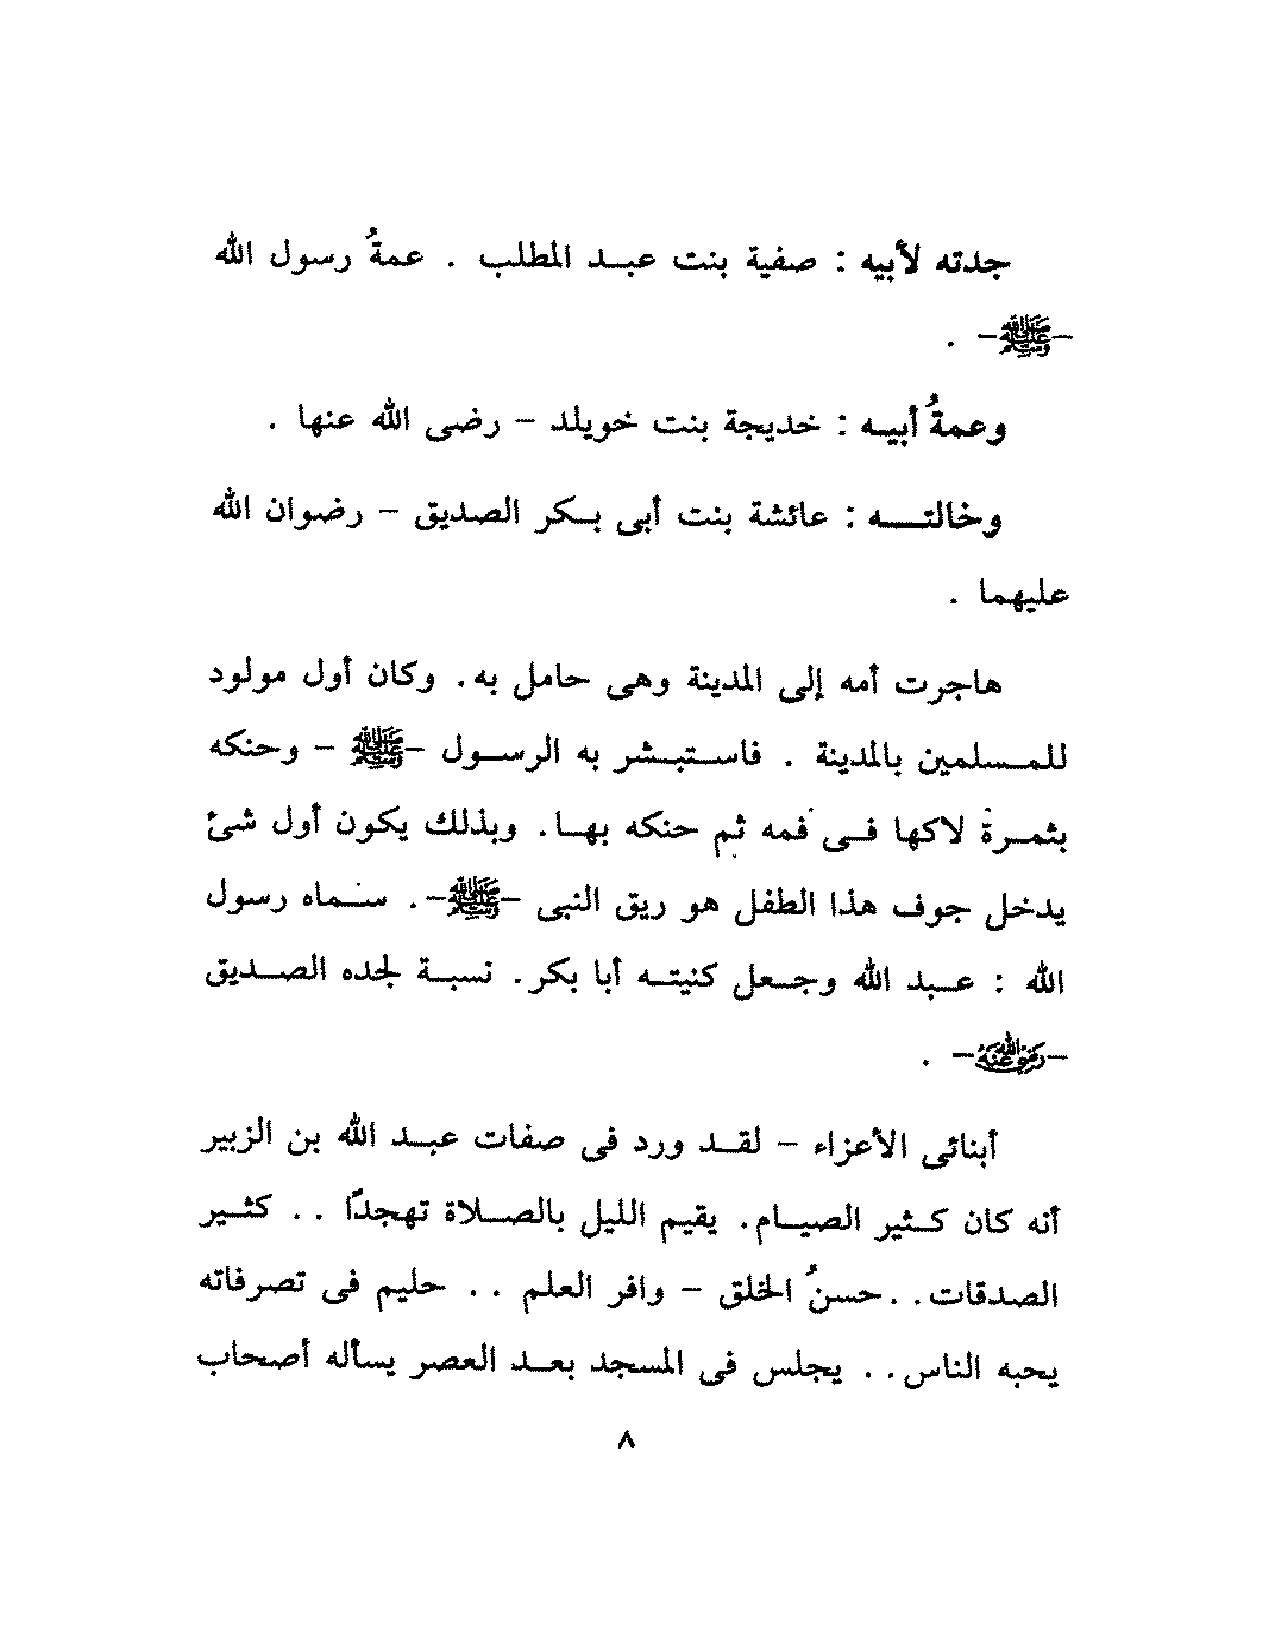 جدته لأبيه : صفية بنت عبد المطلب . عمةُ رسول الله
-ﷺ- .
وعمةُ أبيه : خديجة بنت خويلد - رضى الله عنها .
وخالته : عائشة بنت أبى بكر الصديق - رضوان الله
عليهما .
هاجرت أمه إلى المدينة وهى حامل به . وكان أول مولود
للمسلمين بالمدينة . فاستبشر به الرسول -ﷺ - وحنكه
بثمرة لاكها فى فمه ثم حنكه بها . وبذلك يكون أول شئ
يدخل جوف هذا الطفل هو ريق النبى -ﷺ- . سماه رسول
الله : عبد الله وجعل كنيته أبا بكر . نسبة لجده الصديق
-رضي الله عنه- .
أبنائى الأعزاء - لقد ورد فى صفات عبد الله بن الزبير
أنه كان كثير الصيام . يقيم الليل بالصلاة تهجدًا . . كثير
الصدقات . . حسنُ الخلق - وافر العلم . . حليم فى تصرفاته
يحبه الناس . . يجلس فى المسجد بعد العصر يسأله أصحاب
٨